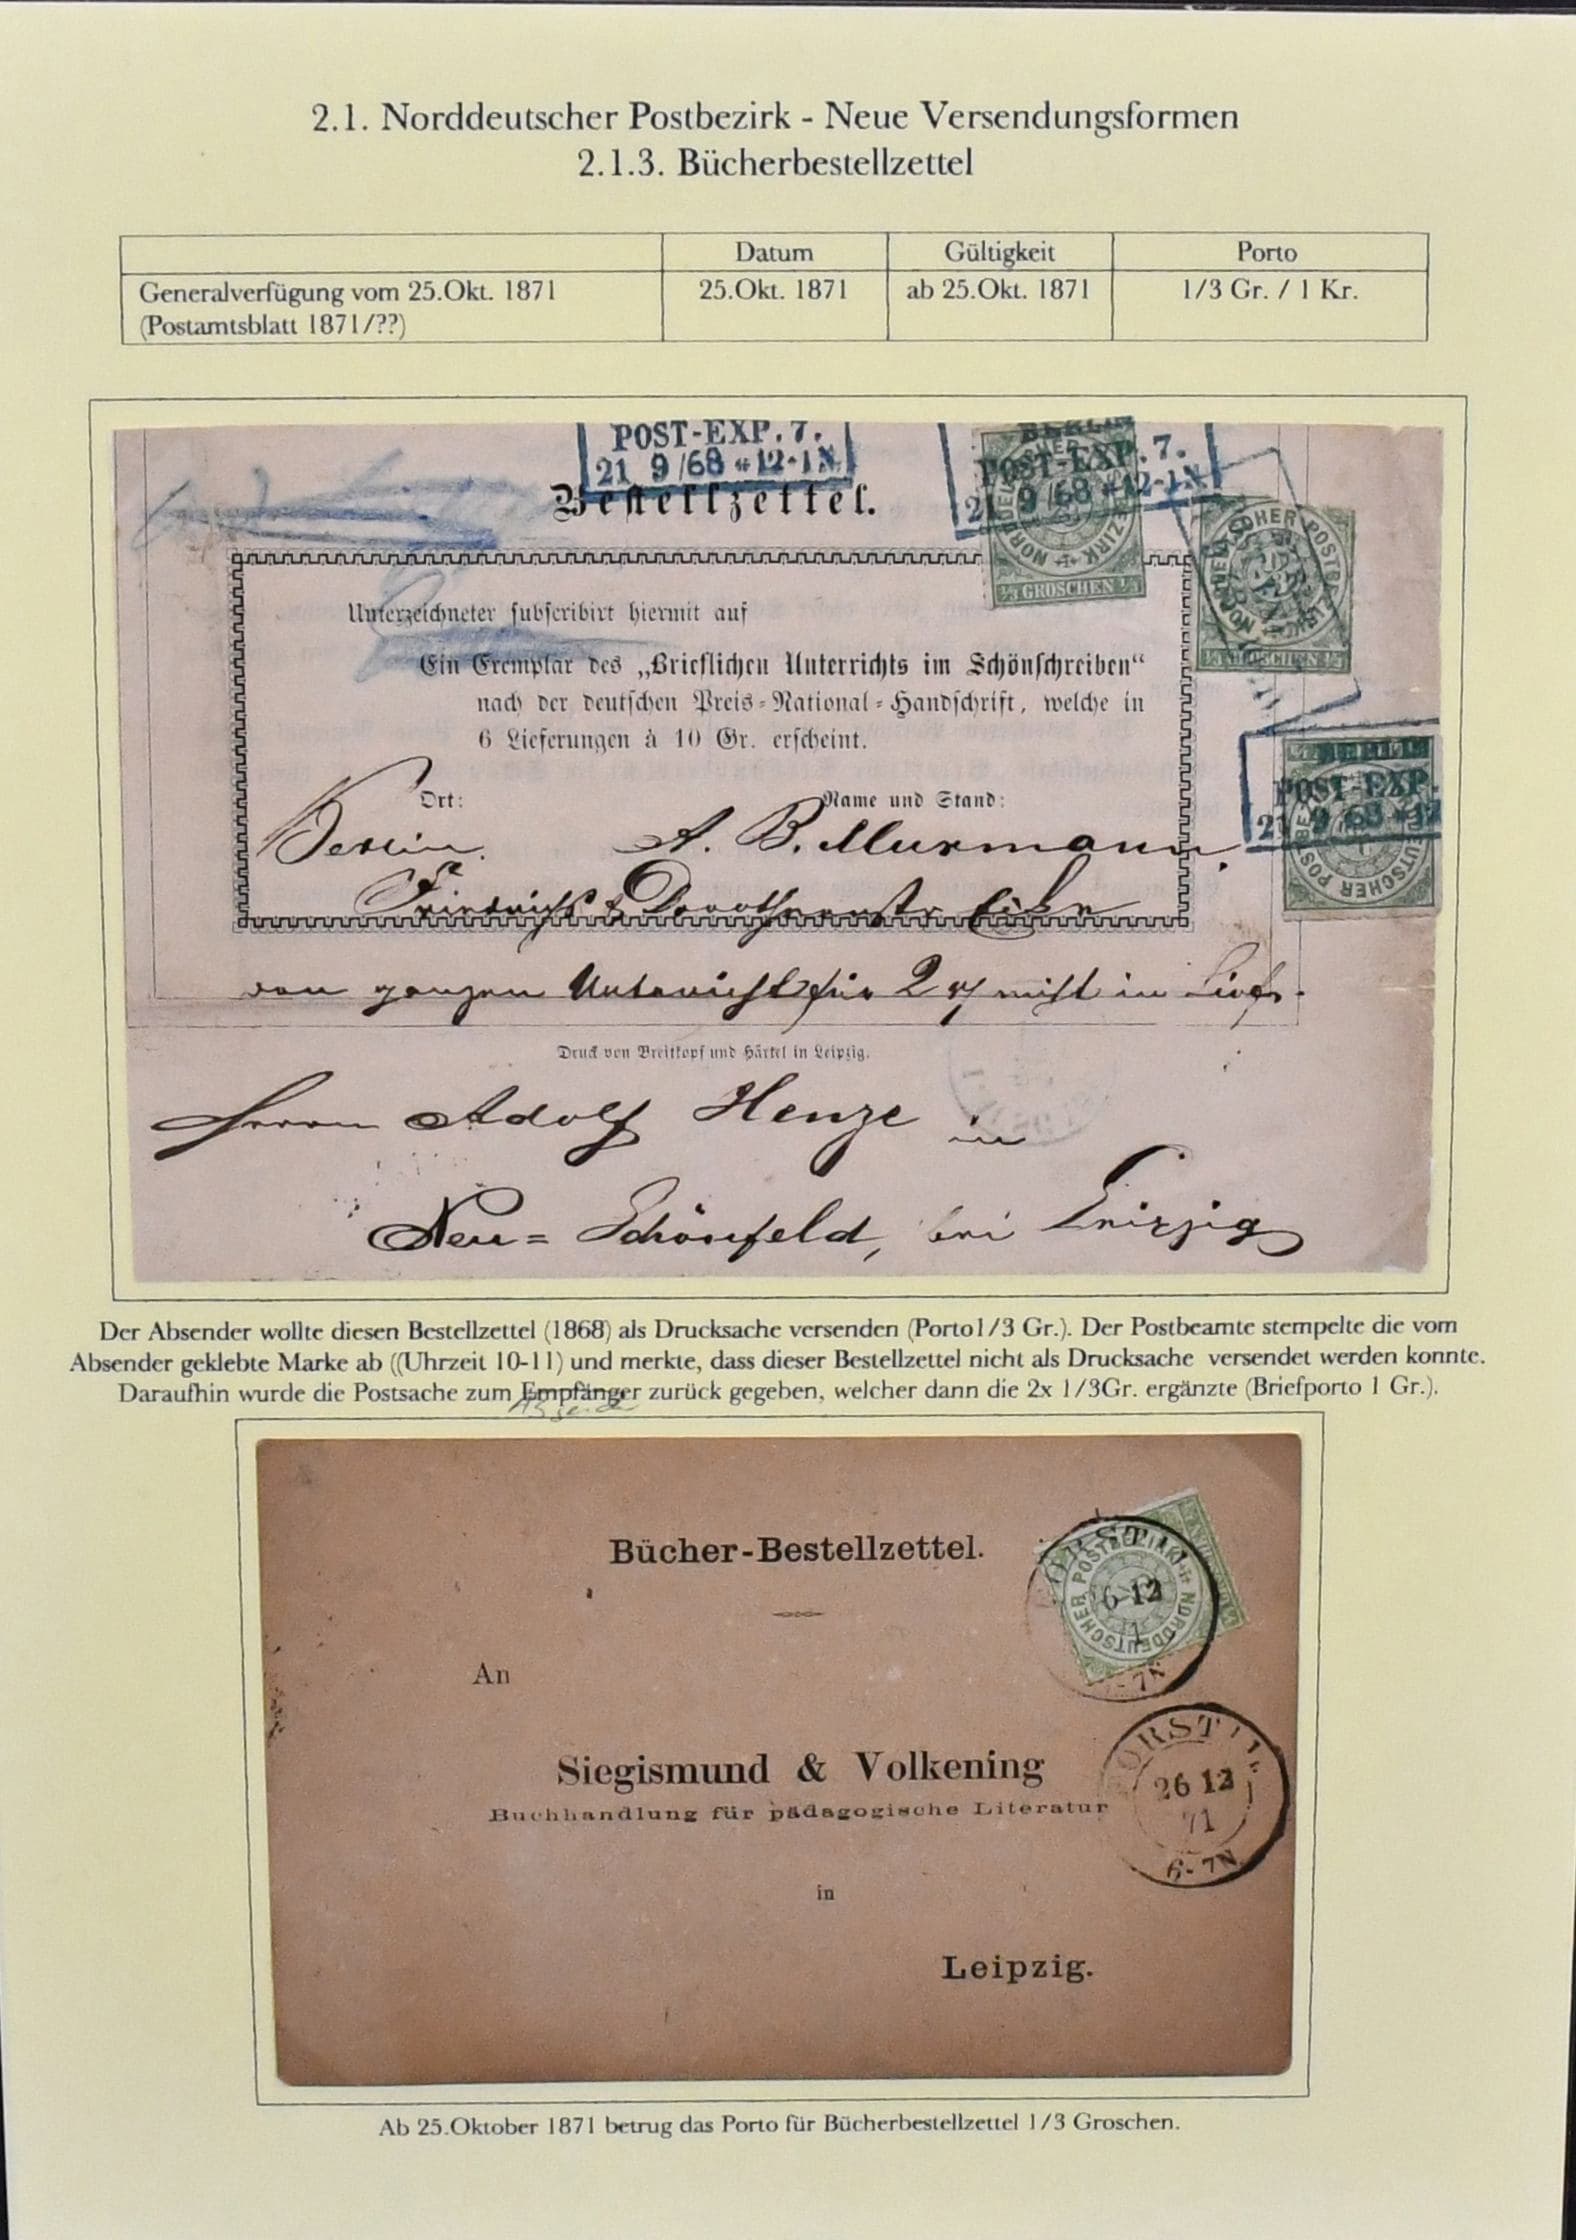 2.1. Norddeutscher Postbezirk - Neue Versendungsformen
2.1.3. Bücherbestellzettel
Datum Gültigkeit Porto
Generalverfügung vom 25.Okt. 1871 25.Okt. 1871 ab 25.Okt. 1871 1/3 Gr. / 1 Kr.
(Postamtsblatt 1871/??)
POST-EXP. 7.
21 9/68 *12-1N
BERLIN
POST-EXP. 7.
21 9/68 *12-1N
NORDDEUTSCHER POSTBEZIRK
1/3 GROSCHEN 1/3
NORDDEUTSCHER POSTBEZIRK
1/3 GROSCHEN 1/3
Bestellzettel.
Unterzeichneter subscribirt hiermit auf
Ein Exemplar des „Brieflichen Unterrichts im Schönschreiben“
nach der deutschen Preis-National-Handschrift, welche in
6 Lieferungen à 10 Gr. erscheint.
BERLIN
POST-EXP.
21 9/68 *12
Ort: Name und Stand:
Berlin. A. B. Murmann.
Friedrichs & Dorotheenstr Ecke
den ganzen Unterricht für 2 nicht in Liefr.
Druck von Breitkopf und Härtel in Leipzig.
Herrn Adolf Henze in
Neu=Schönfeld, bei Leipzig
Der Absender wollte diesen Bestellzettel (1868) als Drucksache versenden (Porto1/3 Gr.). Der Postbeamte stempelte die vom
Absender geklebte Marke ab ((Uhrzeit 10-11) und merkte, dass dieser Bestellzettel nicht als Drucksache versendet werden konnte.
Daraufhin wurde die Postsache zum Empfänger zurück gegeben, welcher dann die 2x 1/3Gr. ergänzte (Briefporto 1 Gr.).
Absender
Bücher-Bestellzettel.
NORDDEUTSCHER POSTBEZIRK
An
Siegismund & Volkening
Buchhandlung für pädagogische Literatur
in
Leipzig.
26 12
71
6-7N
Ab 25.Oktober 1871 betrug das Porto für Bücherbestellzettel 1/3 Groschen.